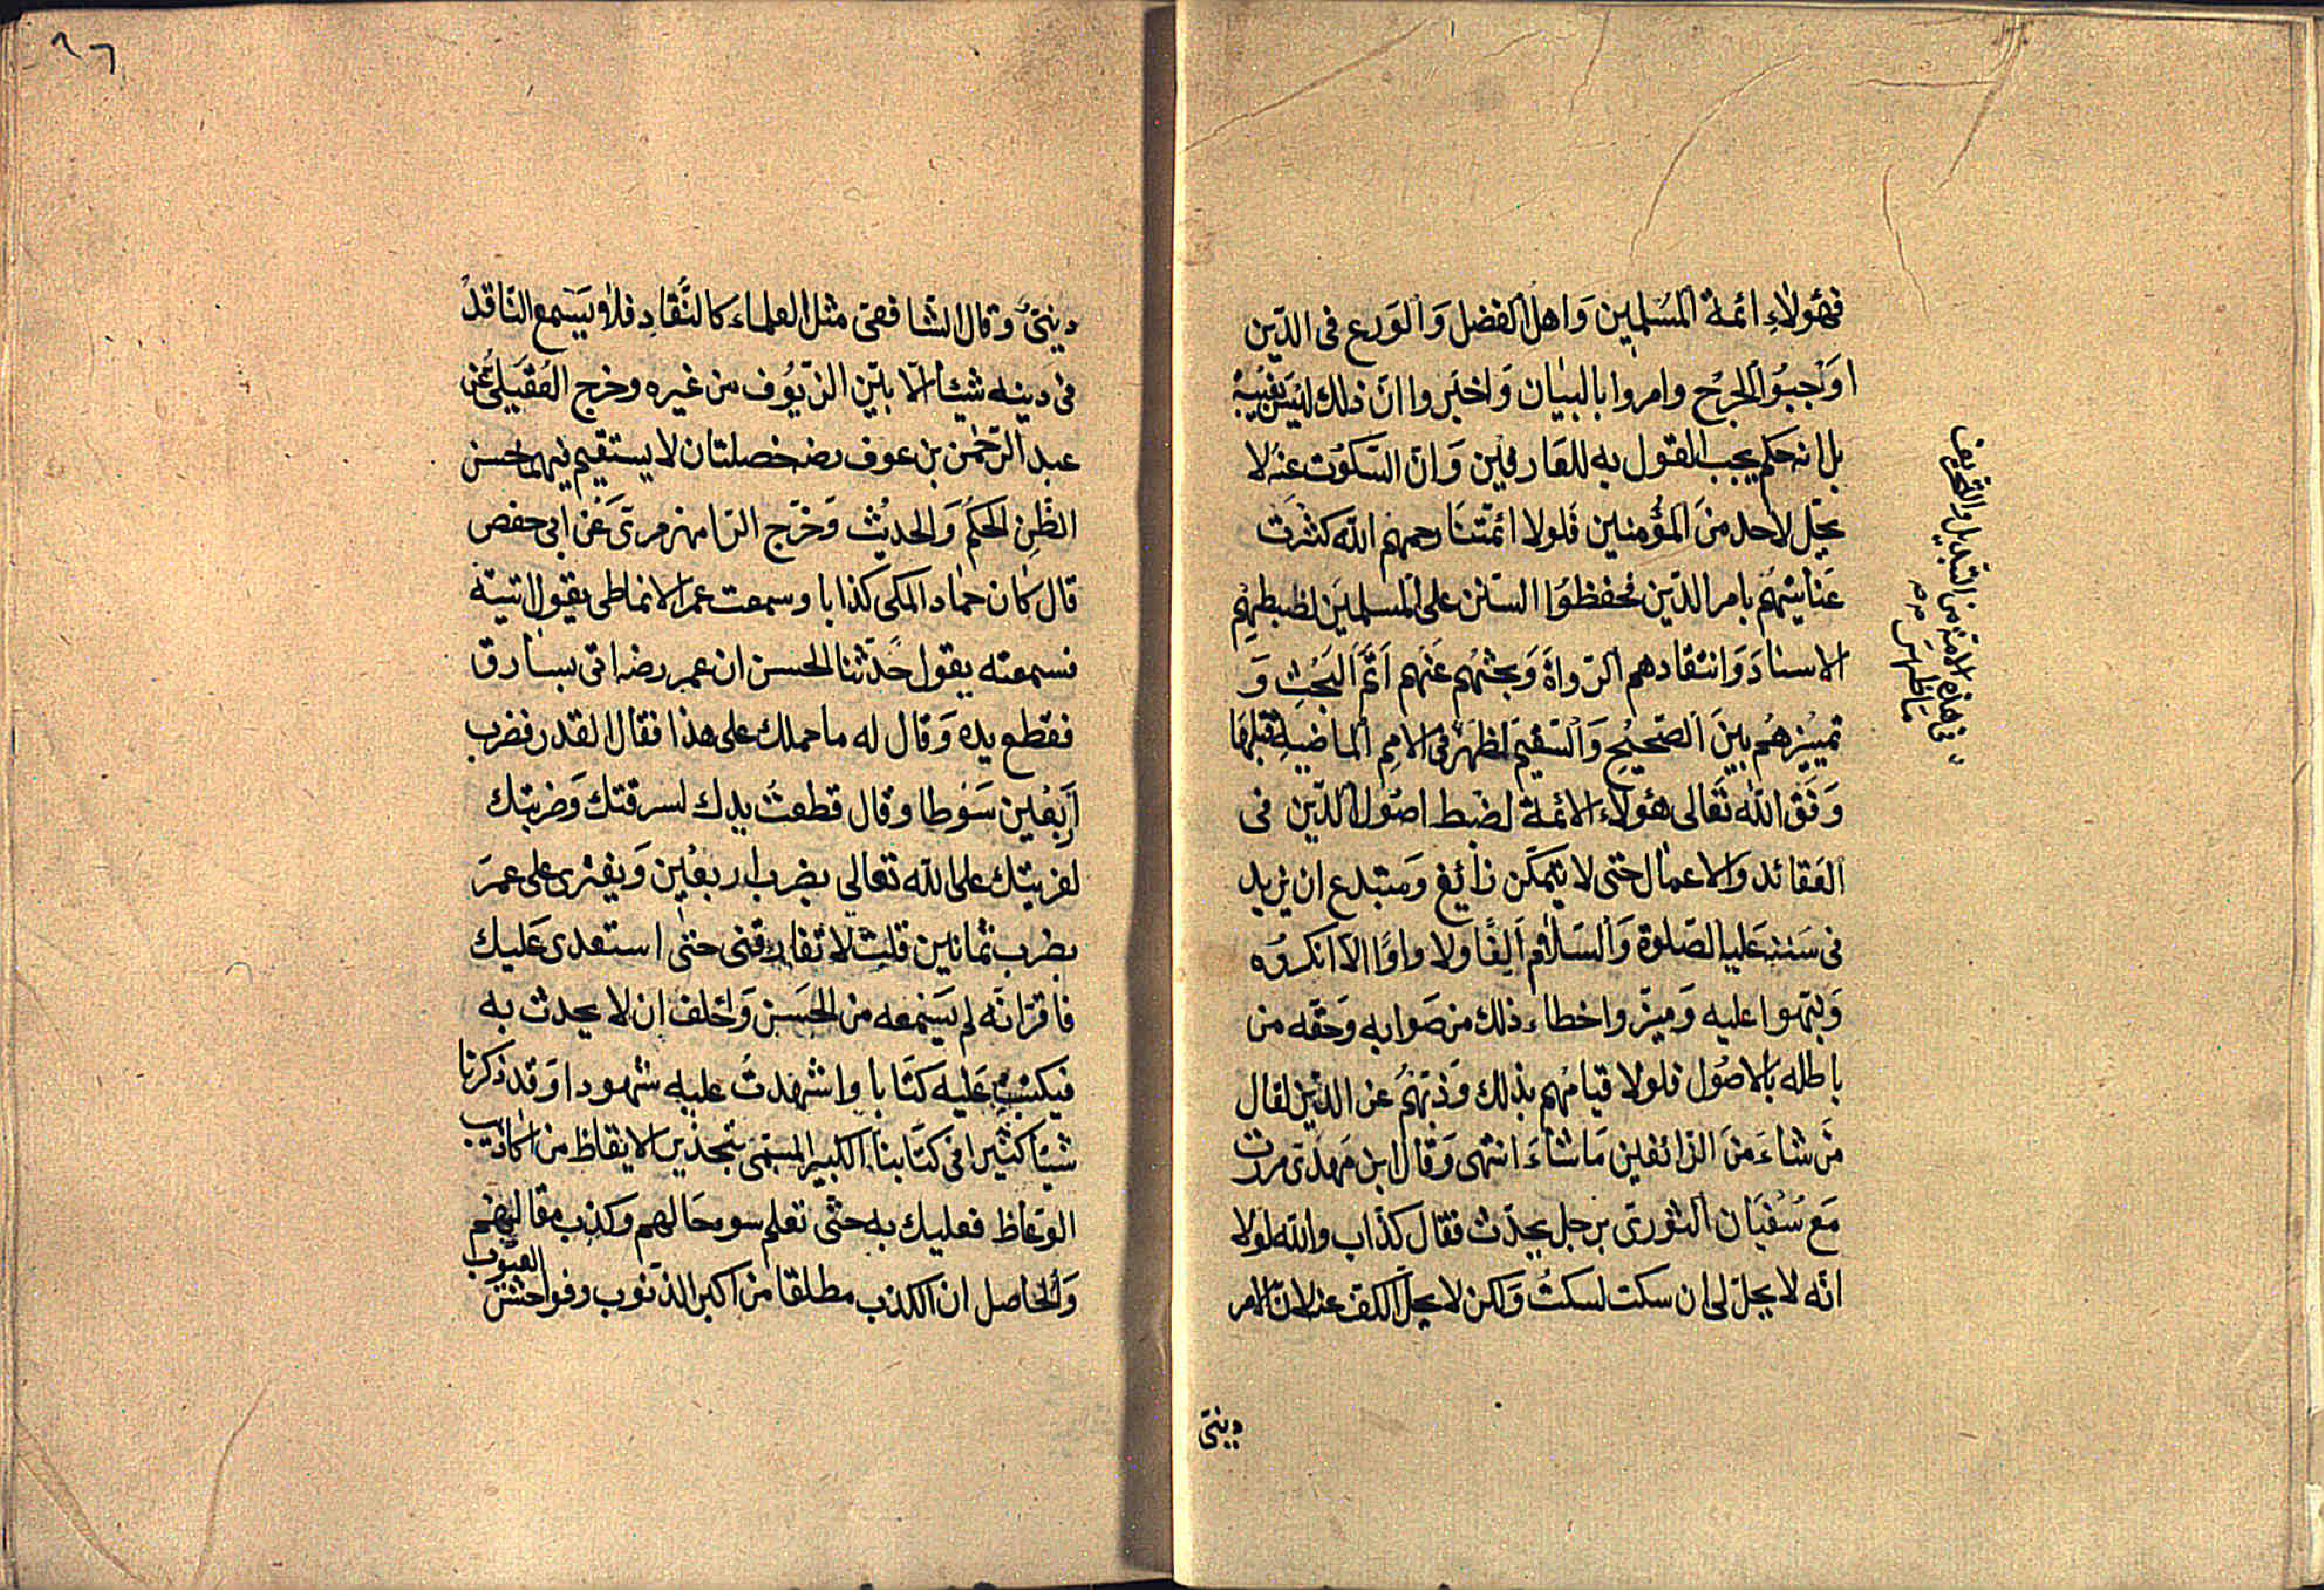 فهؤلاء ائمة المسلمين واهل الفضل والورع فى الدين
اوجبوا الجرح وامروا بالبيان واخبروا ان ذلك ليس بغيبة
بل انه حكم يجب القول به للعارفين وان السكوت عنه لا
يحل لاحد من المؤمنين فلولا ائمتنا رحمهم الله كثرت
عنايتهم بامر الدين فحفظوا السنن على المسلمين لضبطهم
الاسناد وانتقادهم الرواة وبحثهم عنهم اتم البحث و
تمييزهم بين الصحيح والسقيم لظهر فى الامم الماضية قبلها
وفق الله تعالى هؤلاء الائمة لضبط اصول الدين فى
العقائد والاعمال حتى لا يتمكن زائغ ومبتدع ان يزيد
فى سننه عليه الصلوة والسلام الفا ولا واوا الا انكروه
ونبهوا عليه وميزوا خطاء ذلك من صوابه وحقه من
باطله بالاصول فلولا قيامهم بذلك وذبهم عن الدين لقال
من شاء من الزائغين ما شاء انتهى وقال ابن مهدى مررت
مع سفيان الثورى برجل يحدث فقال كذاب والله لولا
انه لا يحل لى ان سكت لسكت ولكن لا يحل الكف عنه لان الامر
دينى
فى هذه الامة من التبديل والتحريف
ما ظهر
٢٦
دينى وقال الشافعى مثل العلماء كالنقاد فلا ويسمع الناقد
فى دينه شيئا الا بين الزيوف من غيره وخرج العقيلى عن
عبد الرحمن بن عوف رضه خصلتان لا يستقيم فيهما حسن
الظن الحكم والحديث وخرج الرامهرمزى عن ابى حفص
قال كان حماد المكى كذابا وسمعت عمر الانماطى يقول اتيته
فسمعته يقول حدثنا الحسن ان عمر رضه اتى بسارق
فقطع يده وقال له ما حملك على هذا فقال القدر فضرب
اربعين سوطا وقال قطعت يدك لسرقتك وضربتك
لفريتك على الله تعالى يضرب اربعين ويفترى على عمر
يضرب ثمانين قلت لا تفارقنى حتى استعدى عليك
فاقر انه لم يسمعه من الحسن واحلف ان لا يحدث به
فيكتب عليه كتابا واشهدت عليه شهودا وقد ذكرنا
شيئا كثيرا فى كتابنا الكبير المسمى بتحذير الايقاظ من اكاذيب
الوعاظ فعليك به حتى تعلم سوء حالهم وكذب مقالهم
والحاصل ان الكذب مطلقا من اكبر الذنوب وفواحش
العيوب